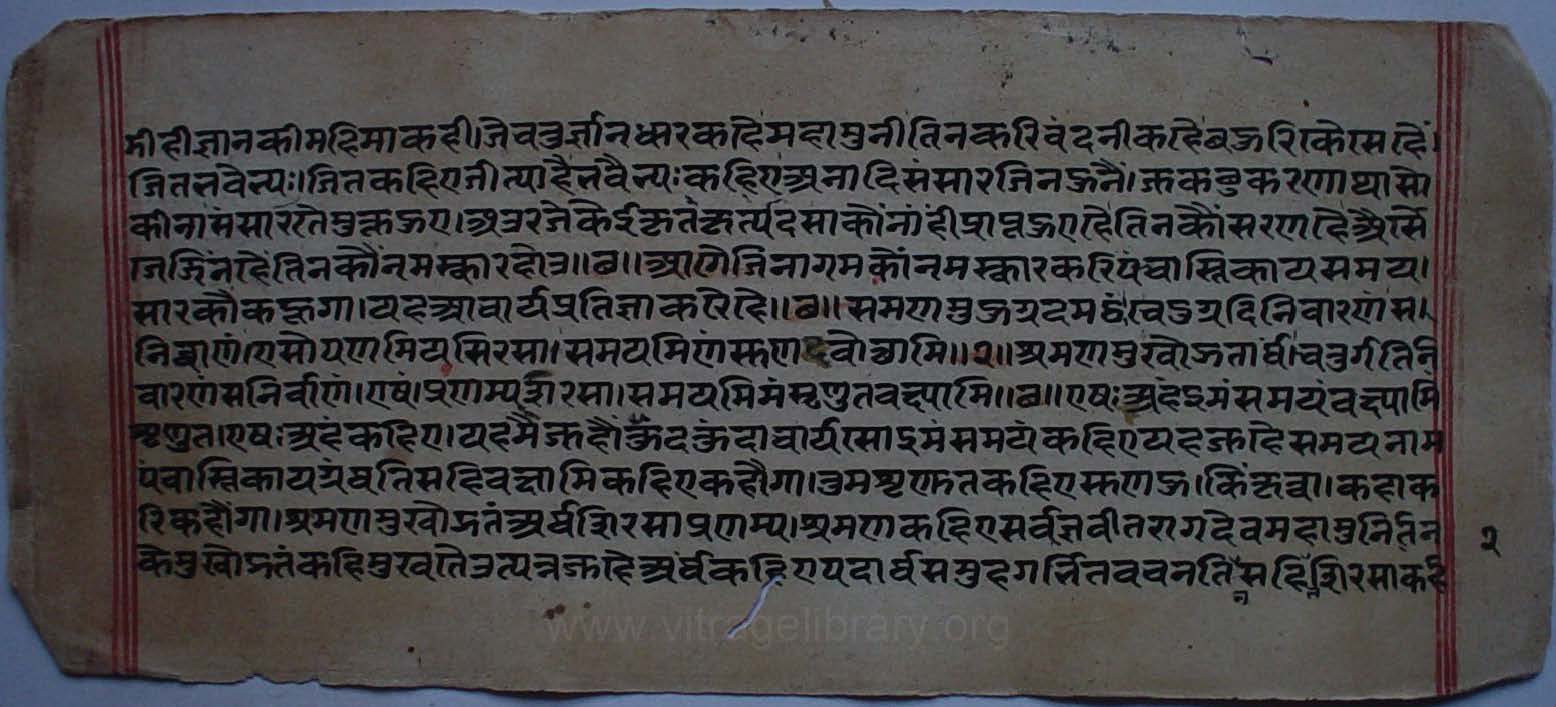 ज्ञानकी महिमा कही। जे चतुर्ज्ञानधारक है महामुनी तिन करि वंदनीक है बऊरि
जितभवेभ्यः। जित कहिए जीत्या है भवेभ्यः कहिए अनादि संसार जिनऊंनै।
संसारतै मुक्त ऊए। कृतकृत्य दसाकौं नांही प्राप्त ऊए है तिनकौं सरण है अैसे
जे जिन है तिनकौं नमस्कार होउ॥ ॥ आगै जिनागमकौं नमस्कार करि पंचास्तिकाय समय
सारकौ कहूंगा। यह आचार्य प्रतिज्ञा करै है॥ ॥ समणमुऊग्गदमट्ठं चऊग्गदिनिवारणं स।
निव्वाणं। एसो पणमिय सिरसा। समयमिणं सुणह वोच्छामि॥२॥ श्रमणमुखोद्गतार्थं। चतुर्गतिनि
वारणं सनिर्वाणं। एष प्रणम्य शिरसा। समयमिमं शृणुत वक्ष्यामि॥ ॥ एषः अहं इमं समयं वक्ष्यामि
शृणुत। एषः अहं कहिए। यह मै कुंदकुंदाचार्य सो इमं समयं कहिए यह समय नाम
पंचास्तिकाय ग्रंथ तिसहि वक्ष्यामि कहिए कहौगा। तुम शृणुत कहिए सुणऊ। किं कृत्वा। कहा क
रि कहौंगा। श्रमणमुखोद्गतं अर्थं शिरसा प्रणम्य। श्रमण कहिए सर्वज्ञ वीतराग देव महामुनि तिन
के मुखोद्गतं कहि मुखतै उत्पन्न है अर्थ कहिए पदार्थसमुह गर्भित वचन शिरसा
२
www.vitragelibrary.org